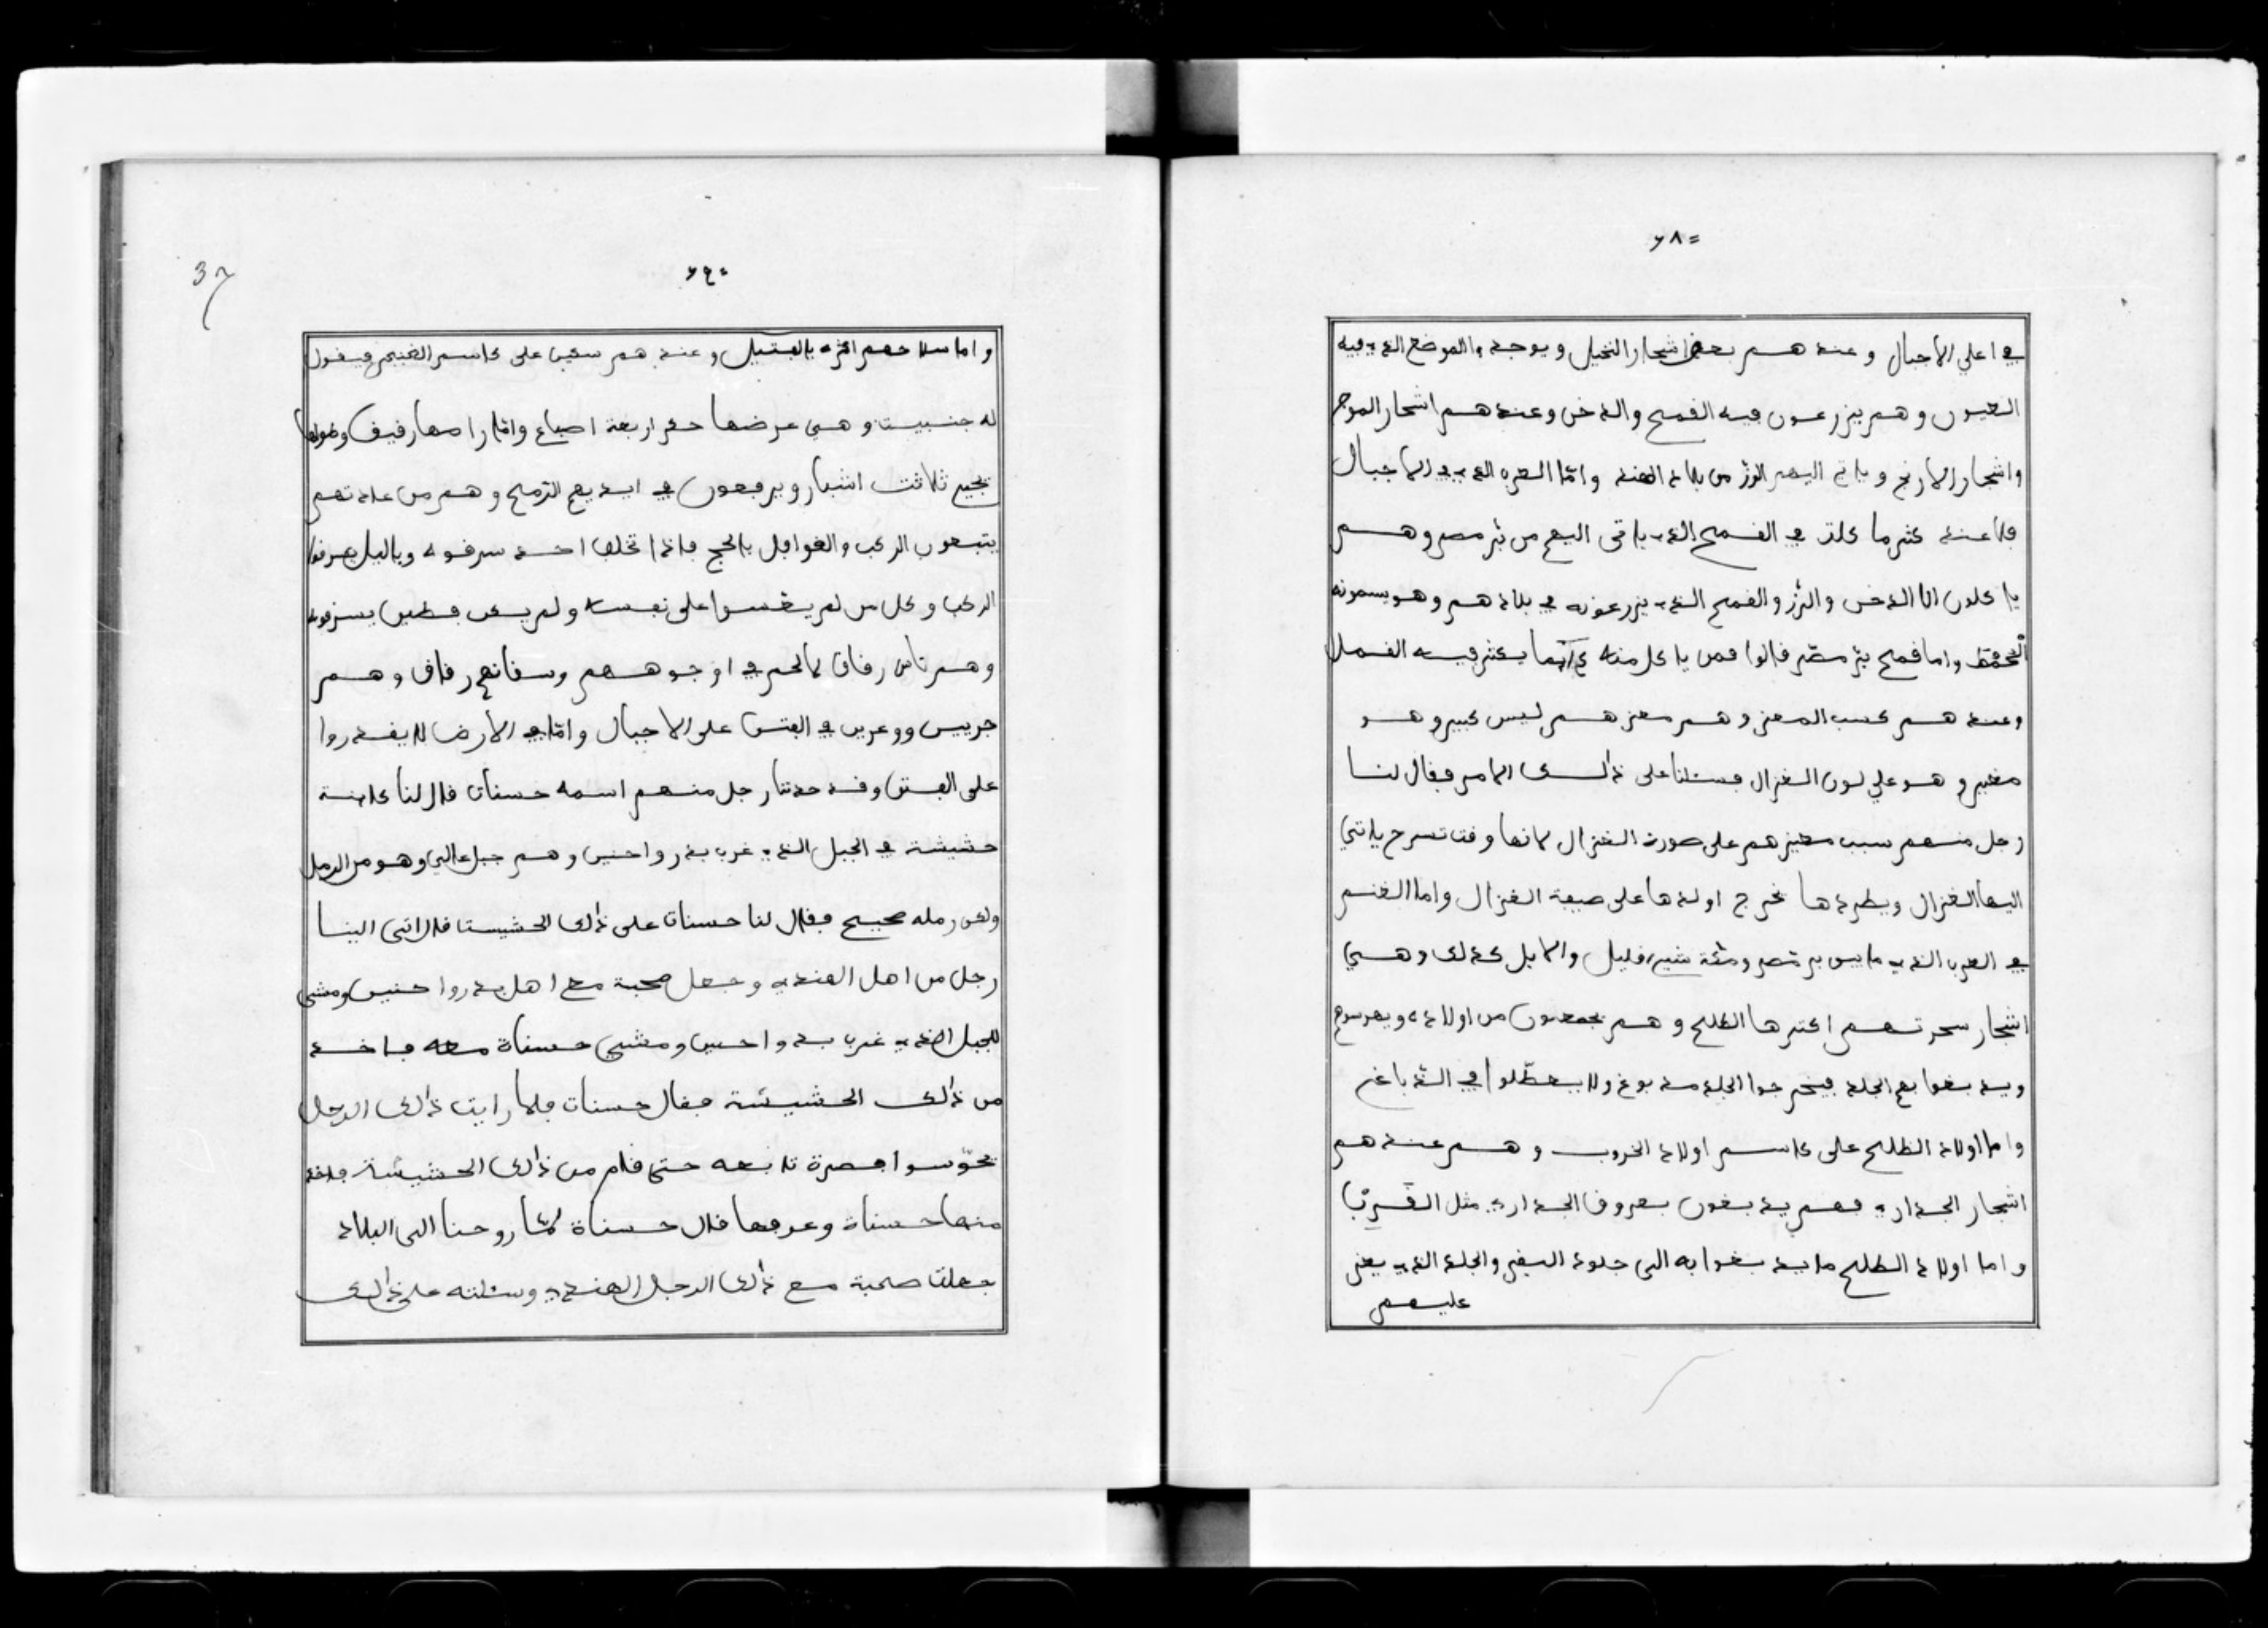 ٦٨=
في اعلي الاجبال وعندهم بعض اشجار النخيل ويوجد الموضع الذي فيه
العيون وهم يزرعون فيه القمح والدخن وعندهم اشجار الموج
واشجار الارنج وياتي اليهم الرز من بلاد الهند وامّا العرب الذي في الاجبال
فلا عندهم في القمح الذي ياتي اليهم من بر مصر وهم
ياكلون الا الدخن والرز والقمح الذي يزرعونه في بلادهم وهو يسمونه
واما قمح بر مصر قالوا فمن ياكل منه يكثر فيه القمل
وعندهم كسب المعز وهم معزهم ليس كبير وهو
مغبر وهو علي لون الغزال فسئلنا على ذالك الامر فقال لنا
رجل منهم سبب معيزهم على صورة الغزال لانها وقت تسرح ياتي
اليها الغزال ويطردها تخرج اولدها على صيفة الغزال واما الغنم
في العرب الذي مابين بر مصر ومكة شيء قليل والابل كذلك وهي
اشجار سحرتهم اكثرها الطلح وهم يجمعون من اولاده
ويدبغوا بهم الجلد فيخرجوا الجلد مدبوغ ولا يعطّلوا في الدباغ
واما اولاد الطلح على كاسم اولاد الخروب وهم عندهم
اشجار الجداري فهم يدبغون بعروف الجداري مثل القربا
واما اولاد الطلح ما يدبغوا به الى جلود البقر والجلد الذي يعز
عليهم
37
٦٩٠
واما سلاحهم اكثره بالفتيل وعندهم سكين على كاسم الخنجر فيقول
له جنبيت وهي عرضها قدر اربعة اصباع وامّا راسها رقيق وطولها
يجي ثلاثت اشبار ويرفعون في ايديهم الرّمح وهم من عادتهم
يتبعون الركب والقوافل بالحج فاذا تخلف احد سرقوه وبالليل يسرقوا
الركب وكل من لم يعس على نفسه ولم يكن فطين يسرقونه
وهم ناس رقاق لالحم في اوجوههم وسقانهم رقاق وهم
جريين ووعرين في الفتن على الاجبال وامّا في الارض لا يقدروا
على الفتن وقد حدثنا رجل منهم اسمه حسنات قال لنا كاينة
حشيشة في الجبل الذي غرب بدر واحنين وهم جبل عالي وهو من الرمل
ولكن رمله صحيح فقال لنا حسنات على ذالك الحشيستا قال اتى الينا
رجل من اهل الهندي وجعل صحبة مع اهل بدر واحنين ومشى
للجبل الذي غرب بدر واحنين ومشي حسناة معه فاخد
من ذالك الحشيشة فقال حسنات فلما رايت ذالك الرجل
تحوّسوا فصرة تابعه حتى قلم من ذالك الحشيشة فاخذ
منها حسناة وعرفها قال حسناة لمّا روحنا الى البلاد
جعلت صحبة مع ذالك الرجل الهندي وسئلته على ذالك